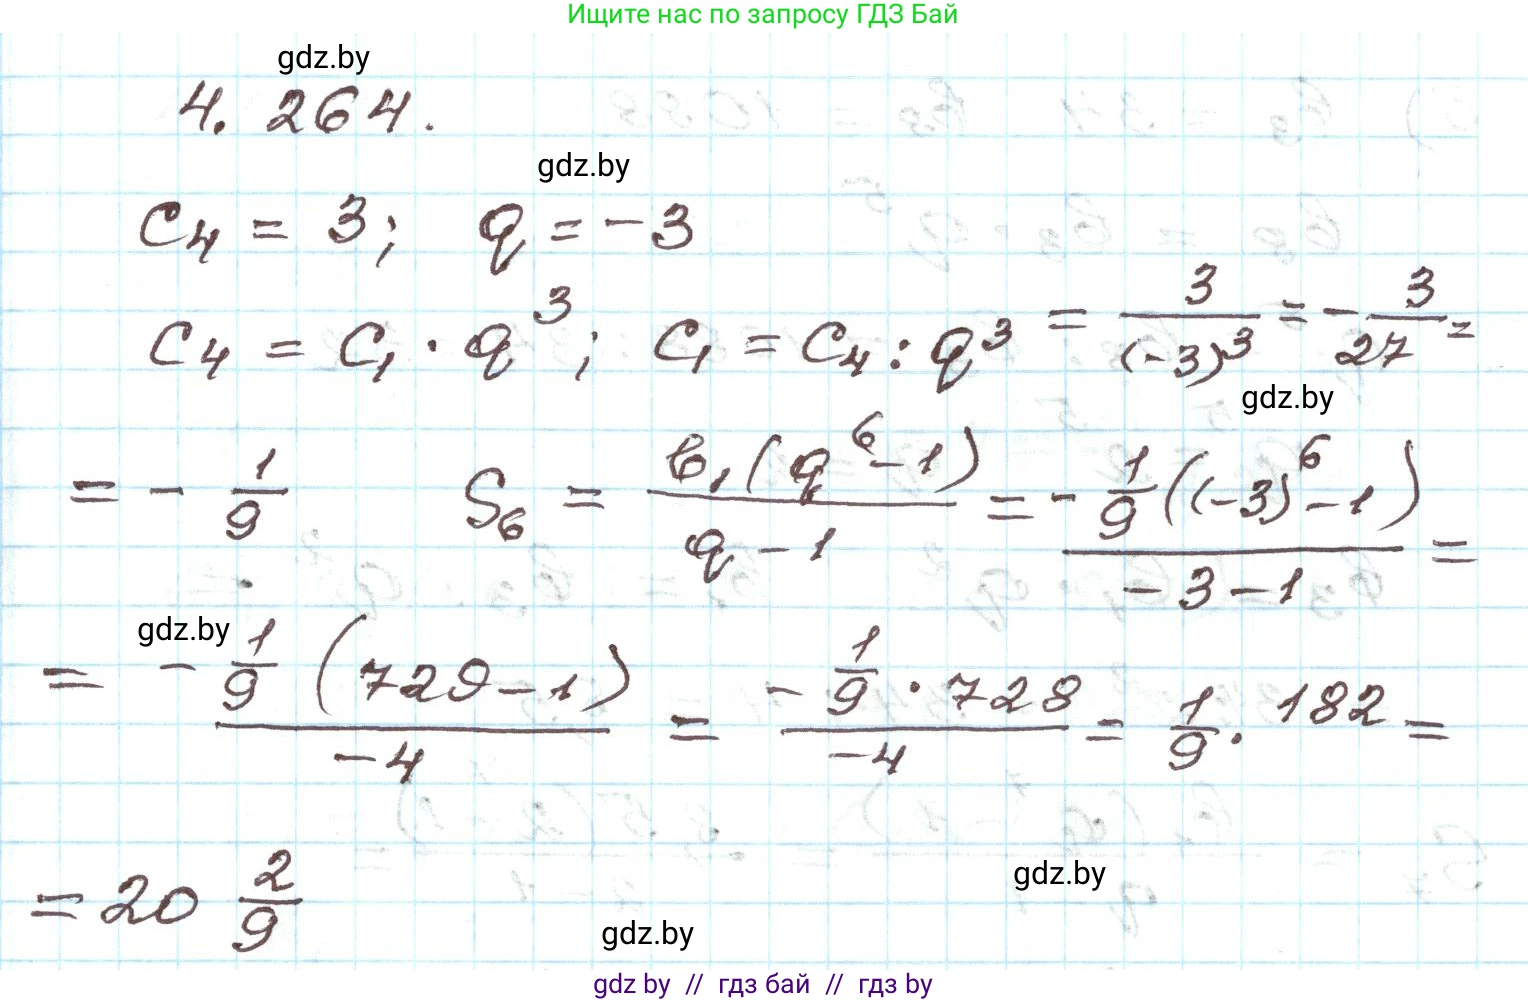 Ищите нас по запросу ГДЗ Бай
gdz.by
4. 264.
gdz.by
c₄ = 3; q = -3
c₄ = c₁ · q³; c₁ = c₄ : q³ = 3/(-3)³ = -3/27 =
gdz.by
= - 1/9 S₆ = b₁(q⁶-1)/q-1 = -1/9((-3)⁶-1)/-3-1 =
gdz.by
= -1/9(729-1)/-4 = -1/9·728/-4 = 1/9 · 182 =
gdz.by
= 20 2/9
gdz.by
gdz by // гдз бай // гдз by